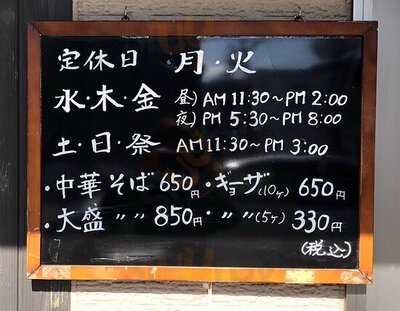 定休日 月・火
水・木・金 昼) AM 11:30～PM 2:00
夜) PM 5:30～PM 8:00
土・日・祭 AM 11:30～PM 3:00
・中華そば 650円 ・ギョーザ(10ヶ) 650円
・大盛 〃 〃 850円 ・〃 〃(5ヶ) 330円
(税込)